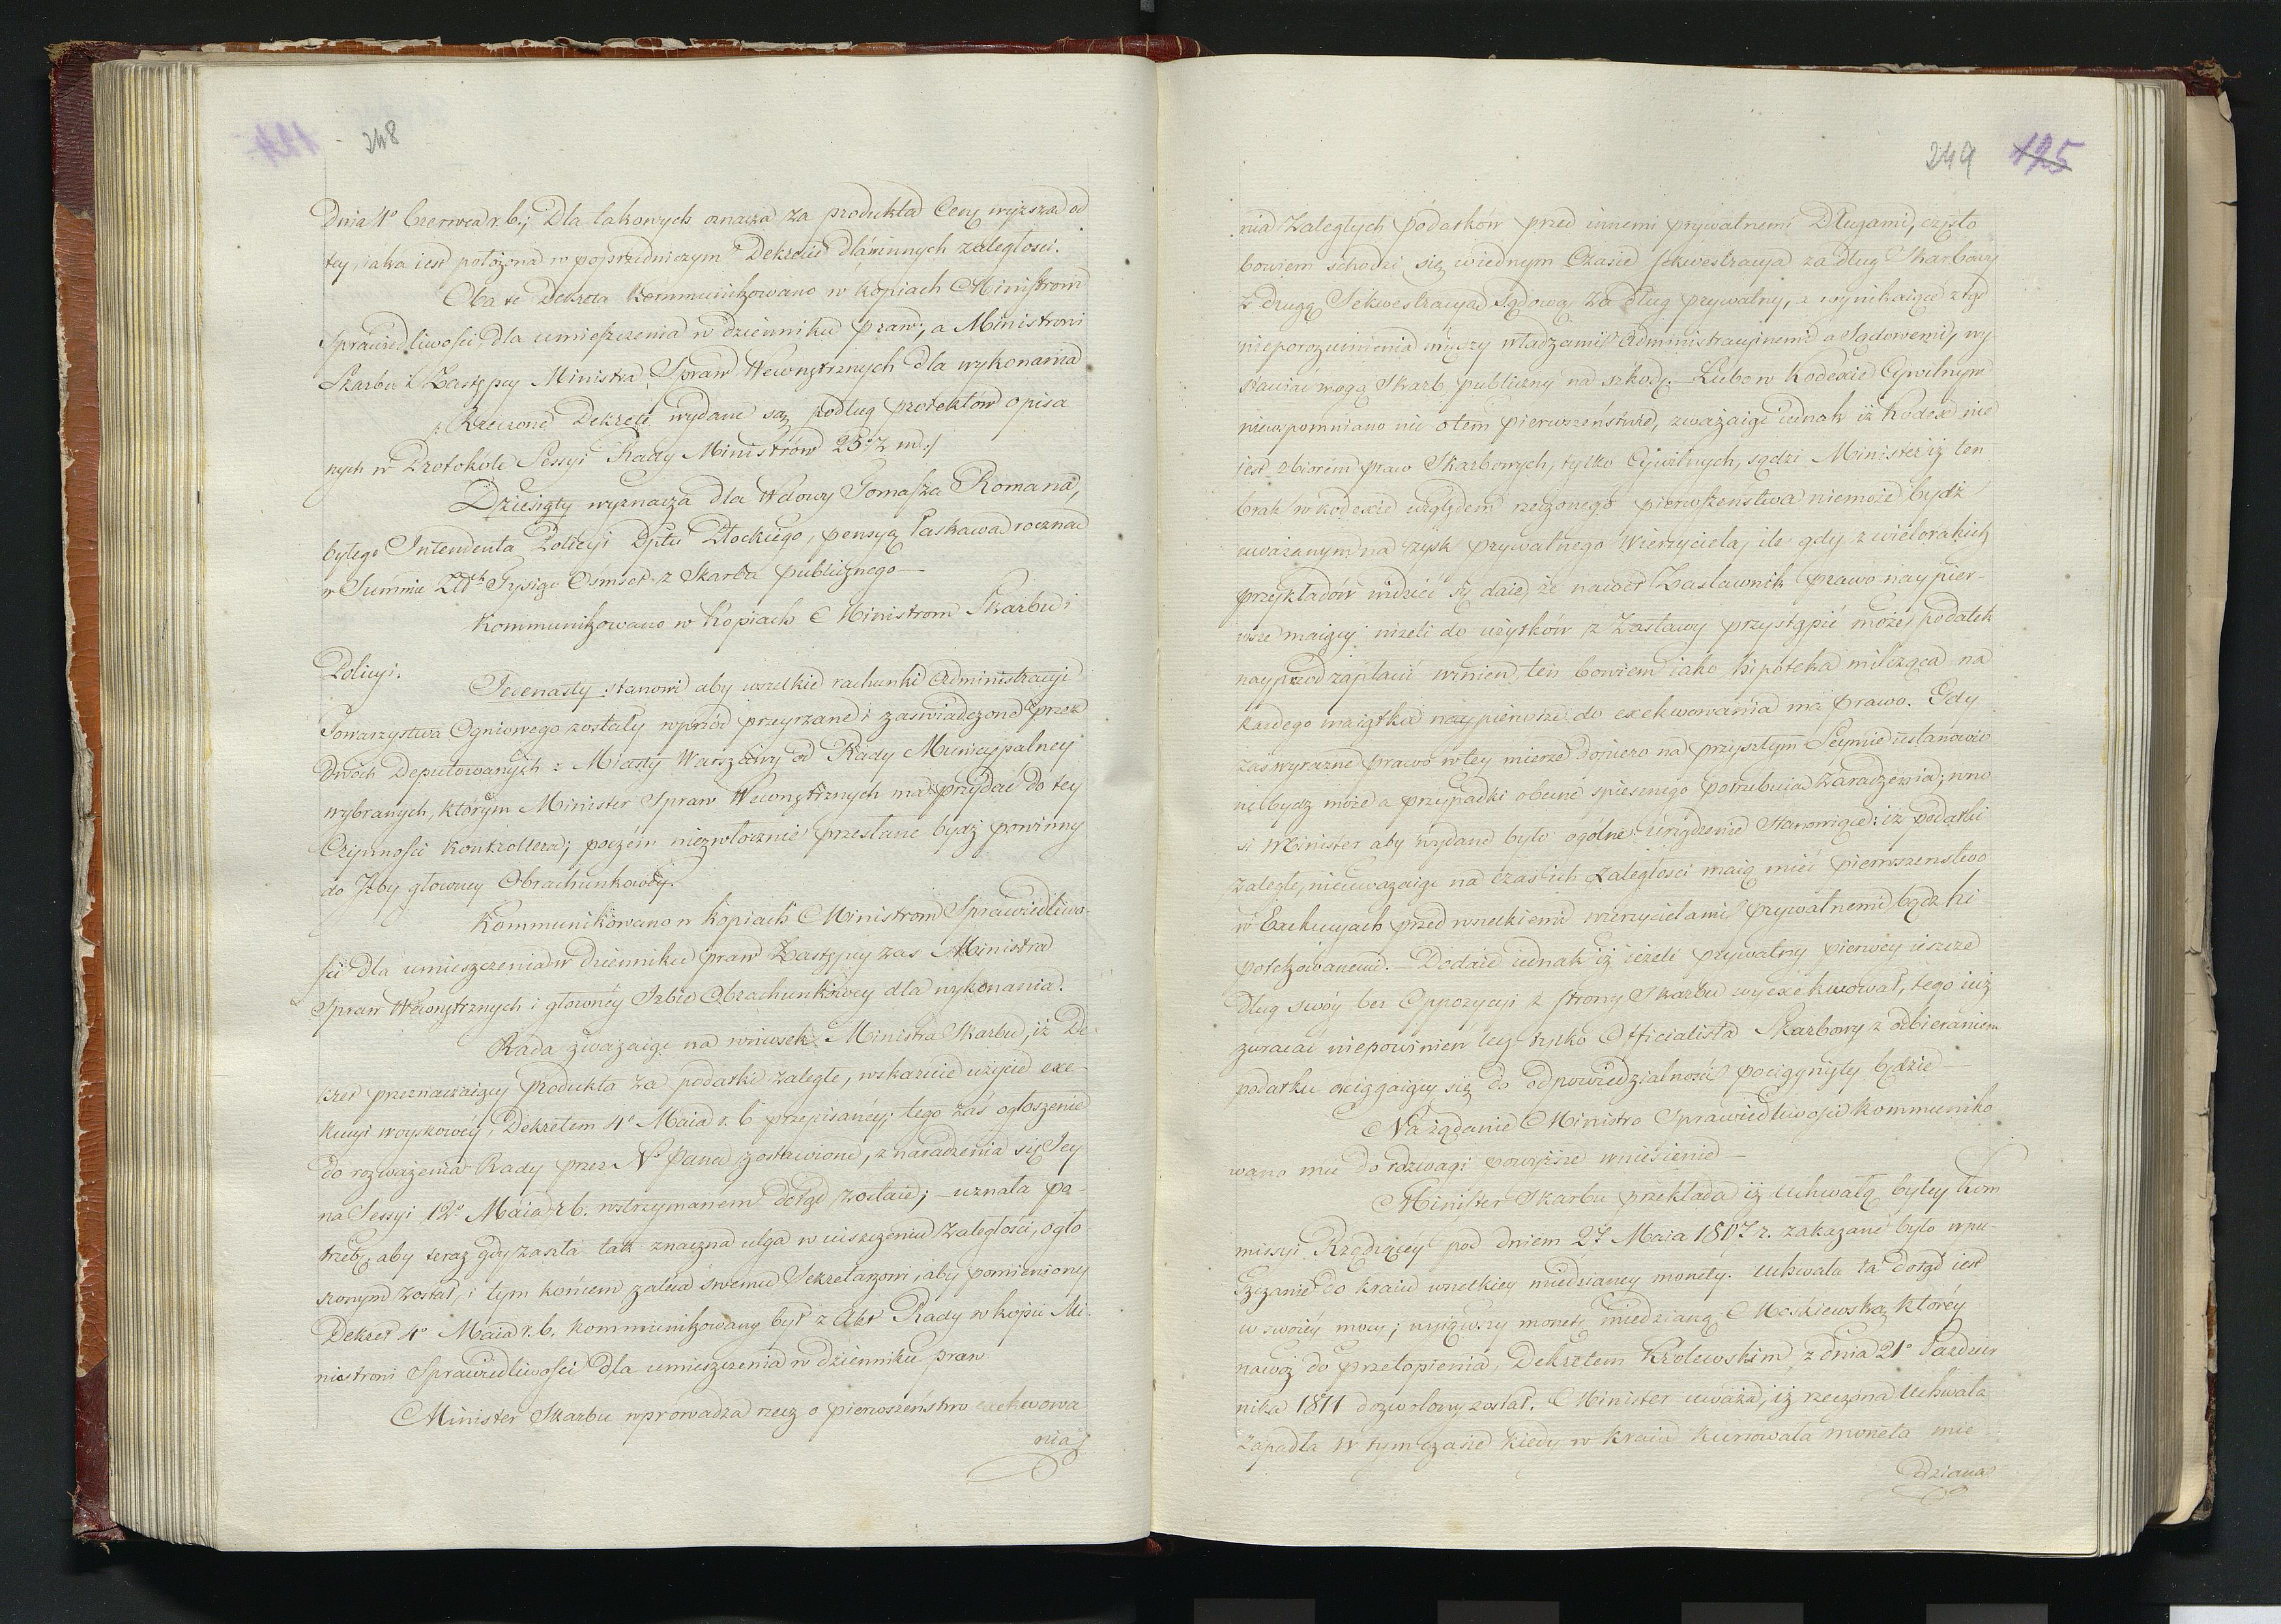 248
Dnia 4º Czerwca r. b.; Dla takowych oznacza za produkta Ceny wyższa od
tey, iaka iest położona w poprzedniczym Dekrecie dla innych zaległości.
Oba te Dekreta kommunikowano w kopiach Ministrom
Sprawiedliwości, dla umieszczenia w dzienniku praw; a Ministrowi
Skarbu i Zastępcy Ministra Spraw Wewnętrznych dla wykonania
/: Rzeczone Dekreta wydane są podług proiektów opisa
nych w Protokole Sessyi Rady Ministrów 25º z m. :/
Dziesiąty wyznacza dla Wdowy Tomasza Romana,
byłego Intendenta Policyi Dptu Płockiego, pensyą łaskawą roczną
w Summie Złtch Tysiąc Ośmset z Skarbu publicznego —
Kommunikowano w Kopiach Ministrom Skarbu i
Policyi.
Jedenasty stanowi aby wszelkie rachunki Administracyi
Towarzystwa Ogniowego zostały wprzód przeyrzane i zaświadczone przez
dwóch Deputowanych z Miasta Warszawy od Rady Municypalney
wybranych, którym Minister Spraw Wewnętrznych ma przydać do tey
Czynności Kontrollera; poczém niezwłocznie przesłane bydź powinny
do Izby główney Obrachunkowéy.
Kommunikowano w kopiach Ministrom Sprawiedliwo-
ści dla umieszczenia w dzienniku praw Zastępcy zas Ministra
Spraw Wewnętrznych i główney Izbie Obrachunkowey dla wykonania.
Rada zważaiąc na wniosek Ministra Skarbu, iż De-
kret przeznaczaiący produkta za podatki zaległe, wskazuie użycie exe-
kucyi woyskowéy, Dekretem 4º Maia r. b. przepisanéy; tego zaś ogłoszenie
do rozważenia Rady przez N. Pana zostawione, z naradzenia się Jey
na Sessyi 12º Maia r. b. wstrzymaném dotąd zostaie; — uznała po-
trzebę, aby teraz gdy zaszła tak znaczna ulga w uiszczeniu zaległości, ogło-
szonym został, i tym końcem zaleca swemu Sekretarzowi, aby pomieniony
Dekret 4º Maia r. b. kommunikowany był z Akt Rady w kopii Mi-
nistrowi Sprawiedliwości dla umieszczenia w dzienniku praw.
Minister Skarbu wprowadza rzecz o pierwszeństwo exekwowa
nia
249 125
nia zaległych podatków przed innemi prywatnemi Długami, często
bowiem schodzi się wiednym Czasie sekwestracya za dług Skarbowy
z drugą Sekwestracyą Sądową za dług prywatny, a wynikaiące ztąd
nieporozumienia między władzami Administracyinemi a Sądowemi, wy
stawiać mogą Skarb publiczny na szkodę. Lubo w Kodexie Cywilnym
niewspomniano nic o tém pierwszeństwie, zważaiąc iednak iż Kodex nie
iest zbiorem praw Skarbowych, tylko Cywilnych, sądzi Minister iż ten
brak w kodexie względem rzeczonego pierwszeństwa niemoże bydź
uważanym na zysk prywatnego Wierzyciela, ile gdy z wielorakich
przykładów widzieć się daie, że nawet Zastawnik prawo naypier-
wsze maiący niżeli do użytków z Zastawy przystąpić może, podatek
nayprzód zapłacić winien, ten bowiem iako hipoteka milcząca na
każdego maiątku naypierwsze do exekwowania ma prawo. Gdy
zaś wyraźne prawo wtey mierze dopiero na przyszłym Seymie ustanowio
ne bydź może a przypadki obecne spiesznego potrzebuią zaradzenia; wno
si Minister aby wydane było ogólne urządzenie stanowiące: iż podatki
zaległe, nieuważaiąc na czas ich zaległości maią mieć pierwszeństwo
w Exekucyach przed wszelkiemi wierzycielami prywatnemi bądź hi
potekowanemi. — Dodaie iednak iż ieżeli prywatny pierwéy ieszcze
Dług swóy bez Oppozycyi z strony Skarbu wyexekwował, tego iuż
zwracać niepowinien lecz tylko Officialista Skarbowy z odbieraniem
podatku ociągaiący się do odpowiedzialności pociągnięty będzie —
Na żądanie Ministra Sprawiedliwości kommuniko
wano mu do rozwagi powyższe wniesienie —
Minister Skarbu przekłada iż uchwałą byłey Kom
missyi Rządzącéy pod dniem 27 Maia 1807 r. zakazane było wpu-
szczanie do kraiu wszelkiey miedzianey monety. Uchwała ta dotąd iest
w swoiéy mocy; wyiąwszy monetę miedzianą Moskiewską, któréy
nawóz do przetopienia, Dekretem Królewskim z dnia 21º Paździer
nika 1811 dozwolony został. Minister uważa, iż rzeczona Uchwała
zapadła w tym czasie kiedy w Kraiu kursowała moneta mie
dziana